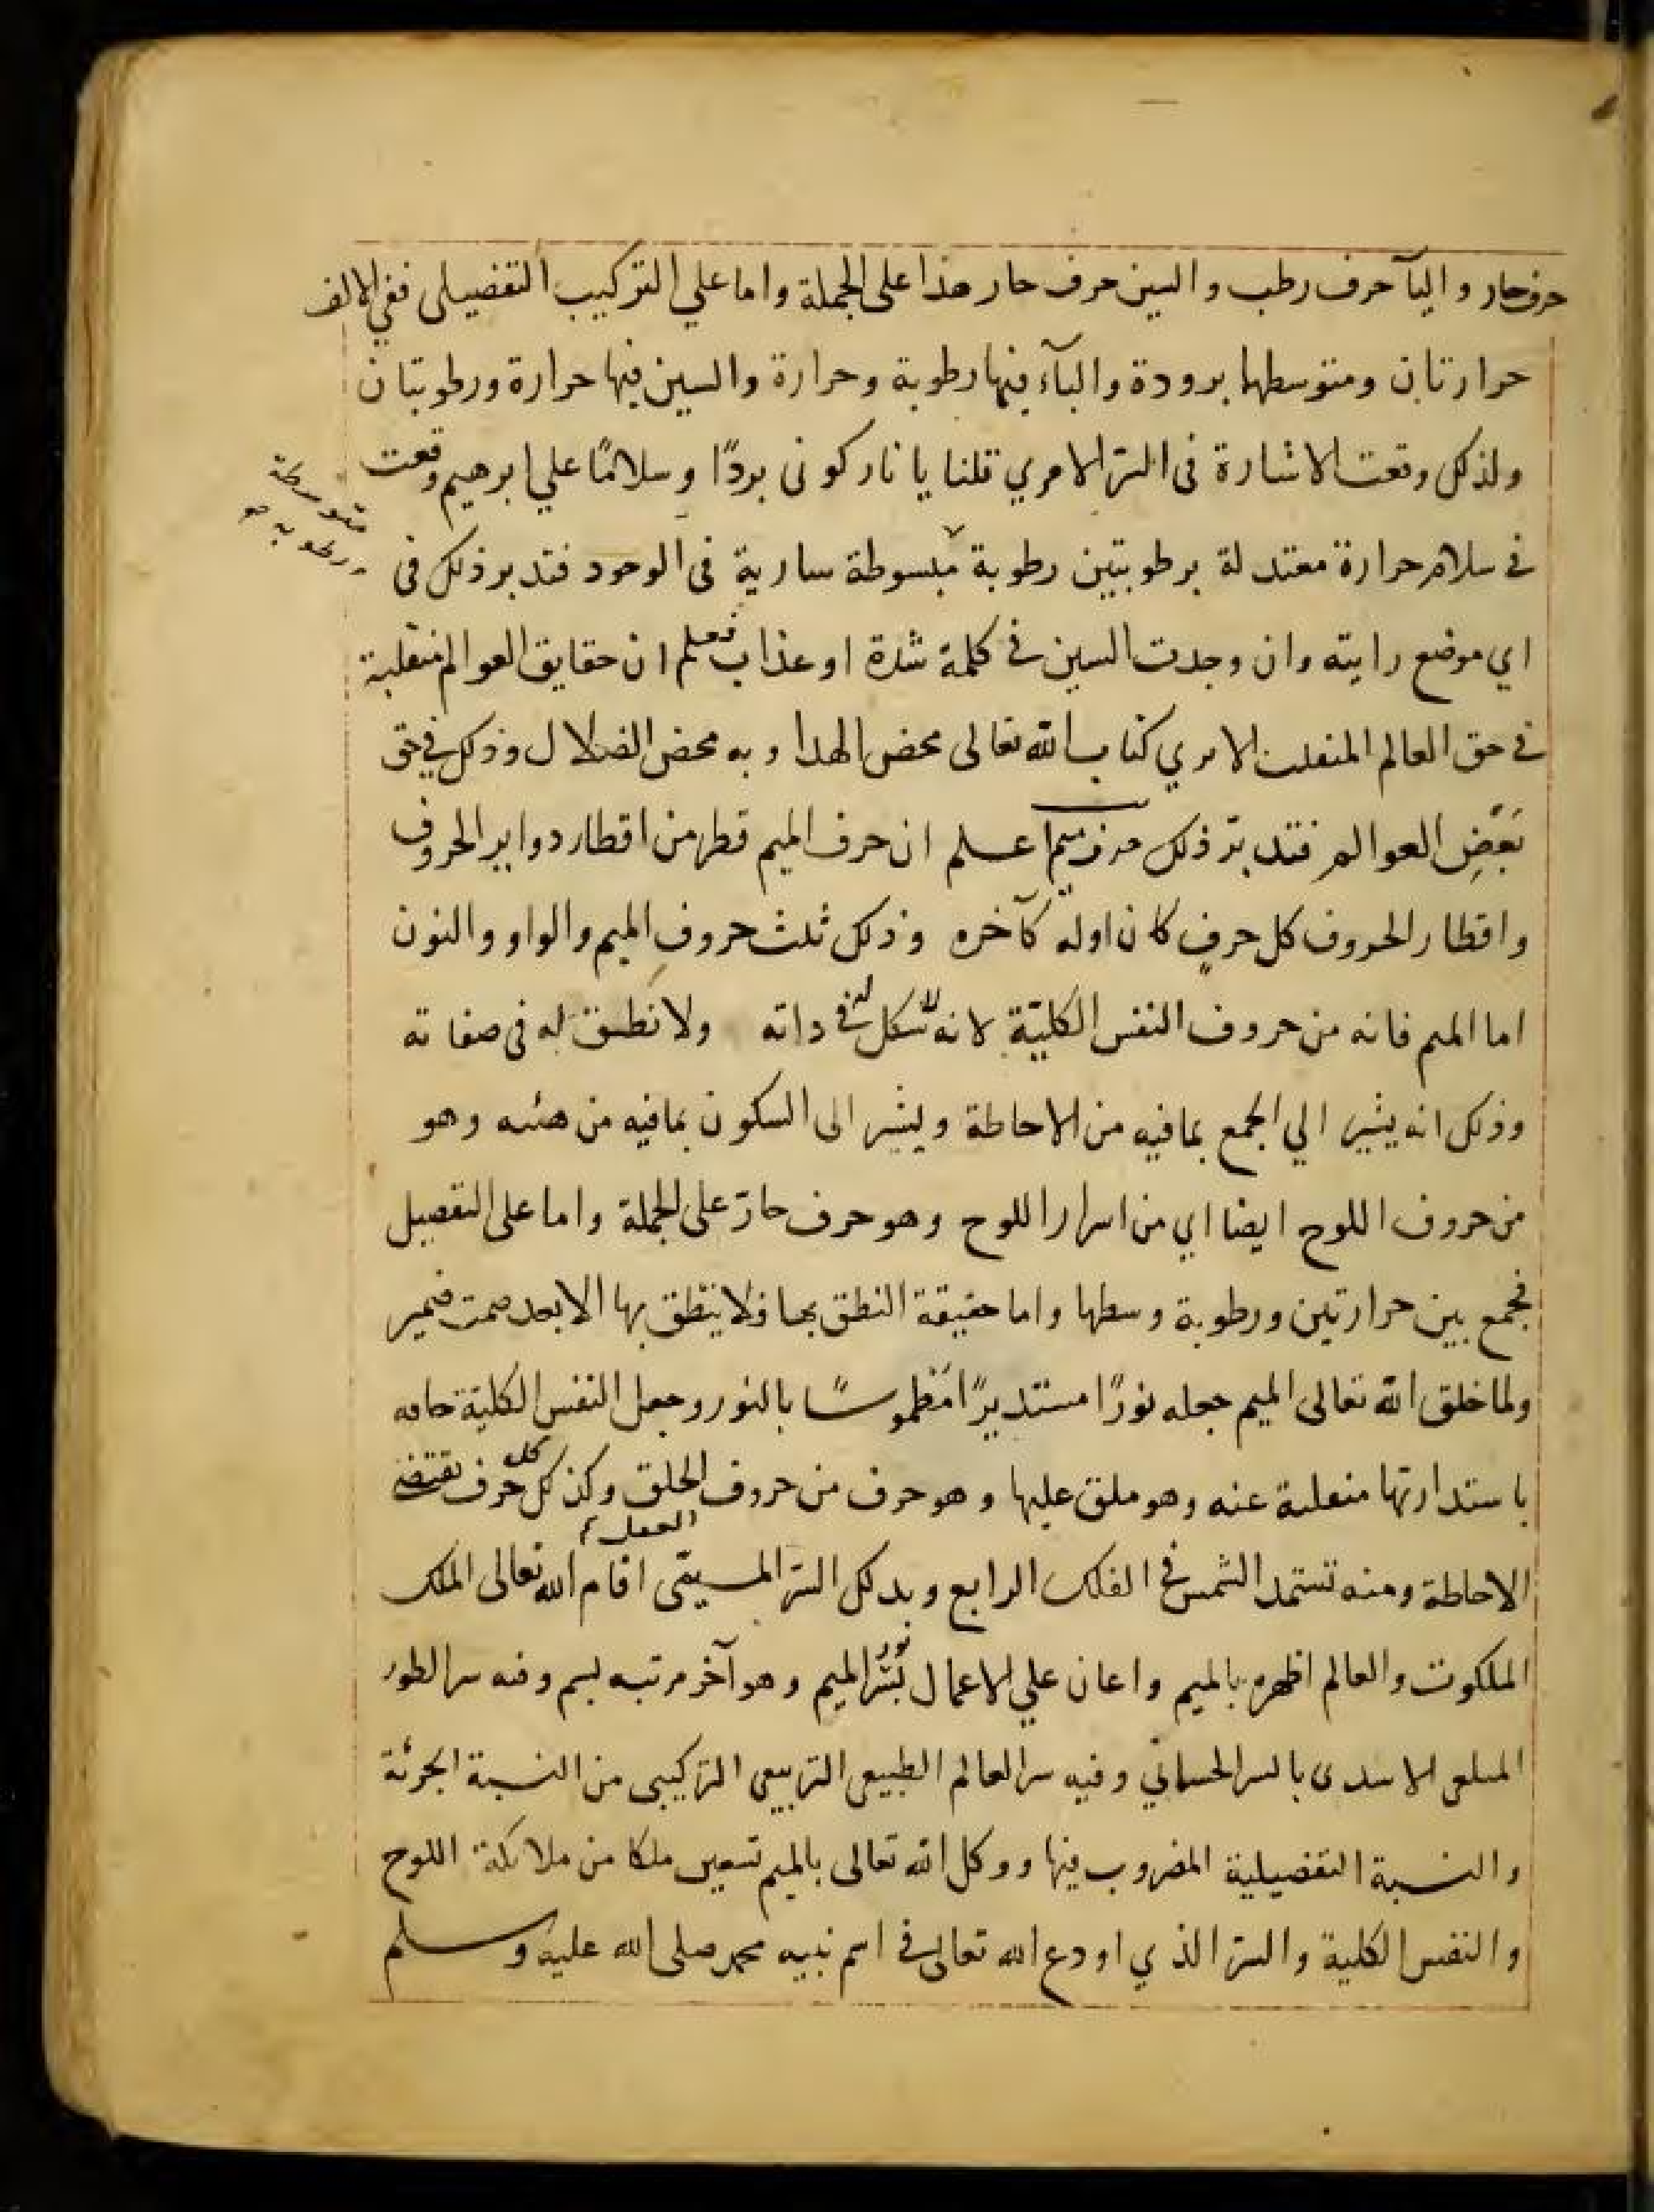 حرف حار و اليآ حرف رطب و السين حرف حار هذا على الجملة واما علي التركيب التفضيلى ففي الالف
حرارتان ومتوسطهما برودة والبآء فيها رطوبة وحرارة والسين فيها حرارة ورطوبتان
ولذلك وقعت الاشارة فى السرّ الامري قلنا يا نار كونى بردًا وسلامًا علي ابرهيم وقعت
متوسطة
ورطوبة
في سلام حرارة معتدلة برطوبتين رطوبة مبسوطة سارية فى الوجود فتدبر ذلك في
اي موضع رايته وان وجدت السين في كلمة شدة او عذاب فعلم ان حقايق العوالم منقلبة
في حق العالم المنقلب الا تري كتاب الله تعالى محض الهدا وبه محض الضلال وذلك في حق
بَعْضِ العوالم فتدبّر ذلك حرف ميم اعلم ان حرف الميم قطر من اقطار دواير الحروف
واقطار الحروف كل حرفٍ كان اوله كآخره وذلك ثلث حروف الميم والواو والنون
اما الميم فانه من حروف النفس الكليّة لانه لا شكل له في ذاته ولا نطق له فى صفاته
وذلك انه يشير الي الجمع بمافيه من الاحاطة ويشير الى السكون بمافيه من هيئه وهو
من حروف اللوح ايضا اي من اسرار اللوح وهو حرف حارّ على الجملة واما على التفصيل
فجمع بين حرارتين ورطوبة وسطها واما حقيقة النطق بها فلا ينطق بها الا بعد صمت ضمير
ولما خلق الله تعالى الميم جعله نورًا مستديرًا مَطموسًا بالنور وجعل النفس الكلية حافه
باستدارتها منقلبة عنه وهو ملق عليها وهو حرف من حروف الخلق وكذلك كل حرف يقتضي
الاحاطة ومنه تستمد الشمس في الفلك الرابع وبذلك السرّ اقام الله تعالى الملك
الملكوت والعالم اظهره بالميم واعان علي الاعمال بسّر نور الميم وهو آخر مرتبه بسم وفيه سر الطور
بالسر الجسماني وفيه سر العالم الطبيعى التربيعى التركيبى من النسبة الجزئة
والنسبة التفضيلية المضروب فيها ووكل الله تعالى بالميم تسعين ملكا من ملائكة اللوح
والنفس الكلية والسرّ الذي اودع الله تعالى في اسم نبيه محمد صلى الله عليه وسلم